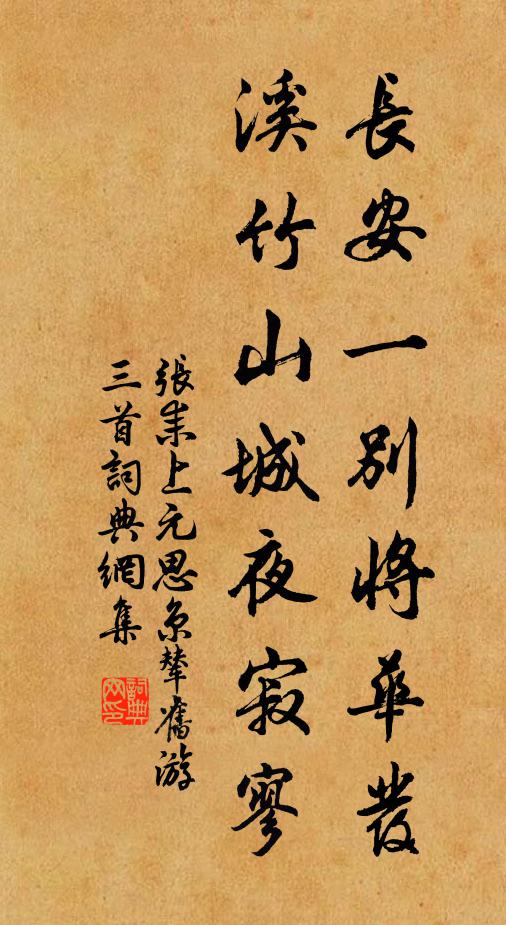 長安一別將華發
溪竹山城夜寂寥
張耒上元思京輦舊游
三首詞典網集
詞典網印